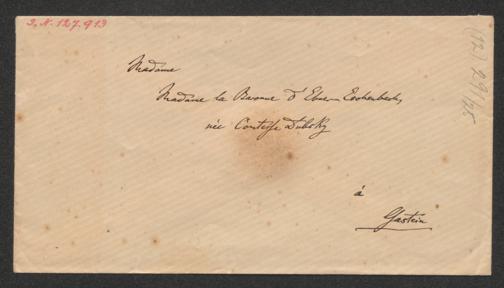 J. N. 127.913
(12) 29/25
Madame
Madame la Baronne d'Ebner-Eschenbach,
née Comtesse Dubsky
à
Gastein